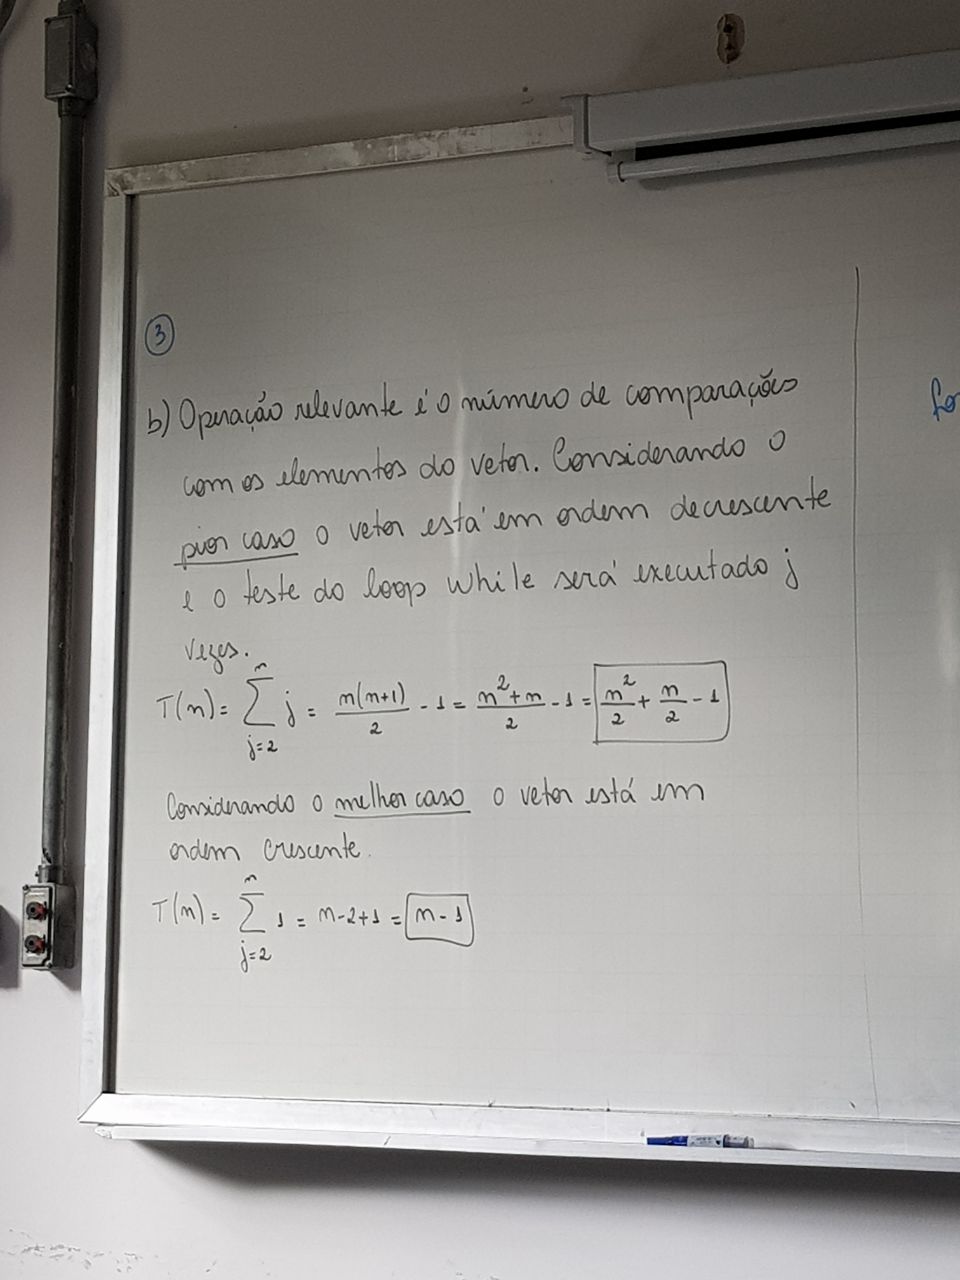 3
b) Operação relevante é o número de comparações
com os elementos do vetor. Considerando o
pior caso o vetor está em ordem decrescente
e o teste do loop while será executado j
vezes.
T(n) = n∑j=2 j = n(n+1)/2 - 1 = n²+n/2 - 1 = n²/2 + n/2 - 1
Considerando o melhor caso o vetor está em
ordem crescente.
T(n) = n∑j=2 1 = n-2+1 = n-1